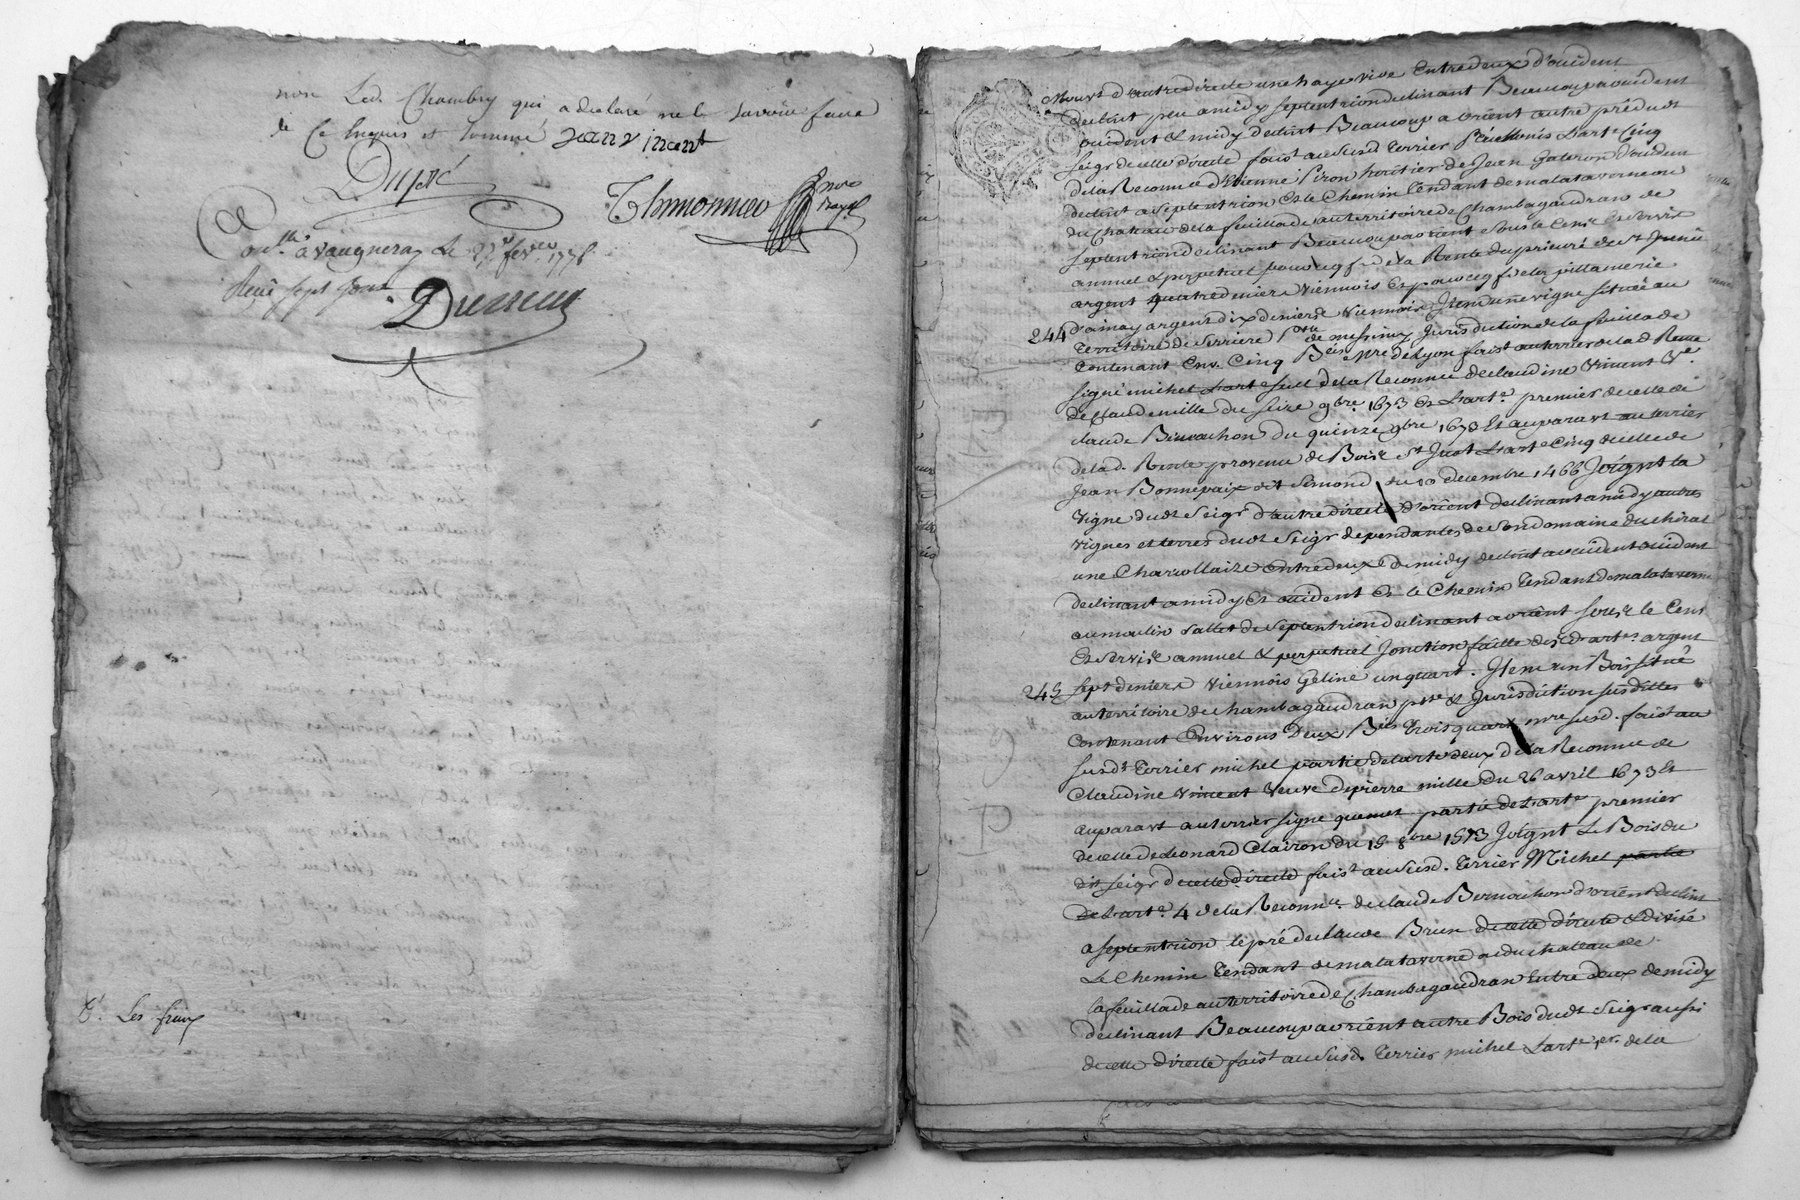 non Led. Chambry qui a declaré ne le savoir faire
de Ce Enquis et sommé jean vincent
Dupré
Thimonnier
no.re royal
Con.lle à vaugneray Le fev.er 177
Reçu sept sous
Les fraix
Mouv.t d'autre directe une haye vive Entredeux d'occident
declint peu a midy septentrion declinant Beaucoup a occident
occident & midy declint Beaucoup a orient autre pré dudt
seigr de cette directe fais.t au susd terrier L'art.e Cinq
de la Reconn.ce d'Etienne Piron heritier de Jean Galeron d'occident
declint a septentrion Et le Chemin Tendant de malataverne au
du Chateau de la feuillade au territoire de Chambagaudran de
septentrion declinant Beaucoup a orient sous le Cens Et servis
annuel & perpetuel pour ce qf. de la Rente du prieuré de St
argent quatre deniers viennois Et pour ce qf. de la pittamerie
d'ainay argent dix deniers viennois. Item une vigne située au
244 Territoire de Serriere P.sse de messimy Jurisdiction de la feuillade
Contenant Env. Cinq Bées m.re de Lyon fais.t au terrier de la d. Rente
signé michel L'art.e sept de la Reconnce de claudine Vincent V.e
de Claude mille du seize 9bre 1673 Et L'art.e premier de celle de
claude Bernachon du quinze 9bre 1673 Et auparavt au terrier
de la d. Rente provenu de Boise St Just L'art.e Cinq de celle de
Jean Bonnepaix dit Simond du 10 decembre 1466 Joignt la
vigne dudt Seigr d'autre directe d'orient declinant a midy autres
vignes et terres dudt Seigr dependantes de son domaine du chirat
une Charrollaize entredeux de midy declint a occident occident
declinant a midy Et occident Et le Chemin Tendant de malataverne
au moulin Sallet de septentrion declinant a orient sous le Cens
Et servis annuel & perpetuel Jonction faitte desd. art.es argent
245 sept deniers viennois Geline un quart. Item un Bois situé
au territoire de chambagaudran p.sse & Jurisdiction susdittes
Contenant Environs Deux Bées Trois quart m.re susd. fais.t au
susdt Terrier michel partie de l'art.e deux de la Reconnce de
Claudine vincent veuve de pierre mille du 26 avril 1673 Et
auparavt au terrier signé quemet partie de L'art.e premier
de celle de Leonard Clairon du 15 8bre 1573 Joignt Le Bois du
dit seigr de cette directe fais.t au susd. Terrier Michel partie
de L'art.e 4 de la Reconn.ce de claude Bernachon d'orient declint
a septentrion le pré de clauve Brun de cette directe & divisé
Le Chemin Tendant de malataverne a du chateau de
la feuillade au territoire de Chambagaudran Entre deux de midy
declinant Beaucoup a orient autre Bois dudt Seigr aussi
de cette directe fais.t au susd. Terrier michel L'art.e pr. de la